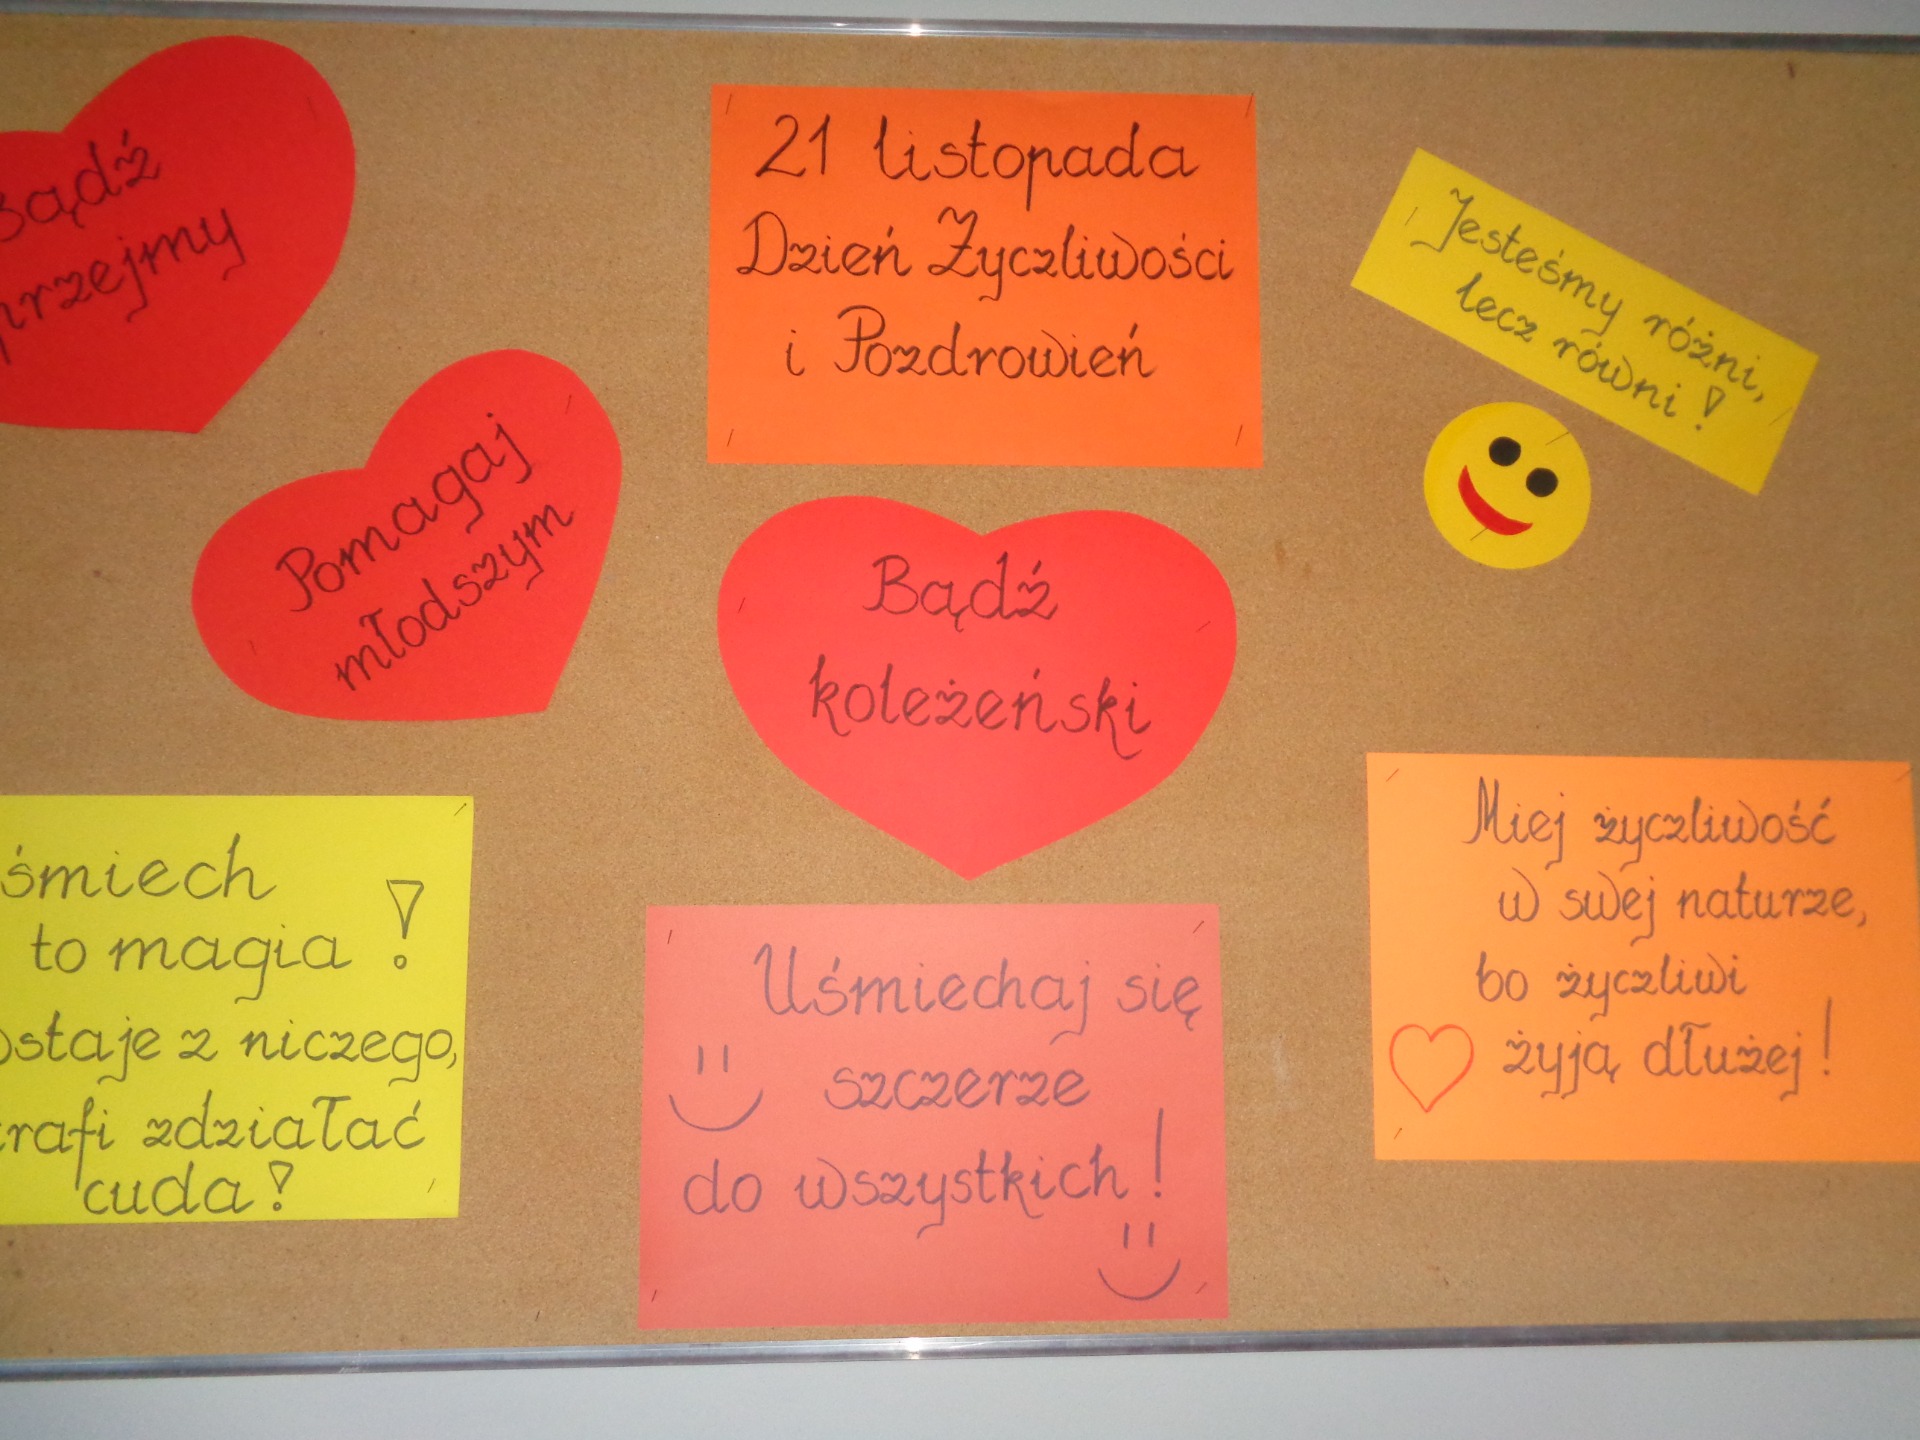 Bądź
przejmy
Pomagaj
młodszym
21 listopada
Dzień Życzliwości
i Pozdrowień
Jesteśmy różni,
lecz równi!
Bądź
koleżeński
śmiech
to magia!
ostaje z niczego,
trafi zdziałać
cuda!
Uśmiechaj się
szczerze
do wszystkich!
Miej życzliwość
w swej naturze,
bo życzliwi
żyją dłużej!